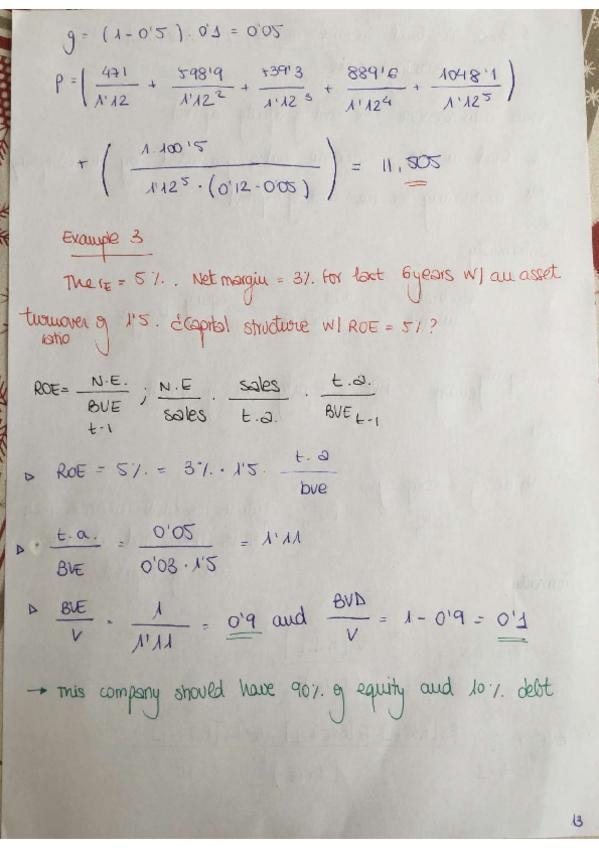 g = (1-0'5) · 0'1 = 0'05
P = ( 471 / 1'12 + 598'9 / 1'12² + 739'3 / 1'12³ + 889'6 / 1'12⁴ + 1048'1 / 1'12⁵ )
+ ( 1.100'5 / 1'12⁵ · (0'12-0'05) ) = 11,505
Example 3
The rE = 5%. Net margin = 3% for last 6 years w/ an asset
turnover ratio of 1'5. ¿Capital structure w/ ROE = 5%?
ROE = N.E. / BVE t-1 ; N.E / sales · sales / t.a. · t.a. / BVE t-1
▷ ROE = 5% = 3% · 1'5 · t.a / bve
▷ t.a. / BVE = 0'05 / 0'03 · 1'5 = 1'11
▷ BVE / V = 1 / 1'11 = 0'9 and BVD / V = 1 - 0'9 = 0'1
→ This company should have 90% of equity and 10% debt
13